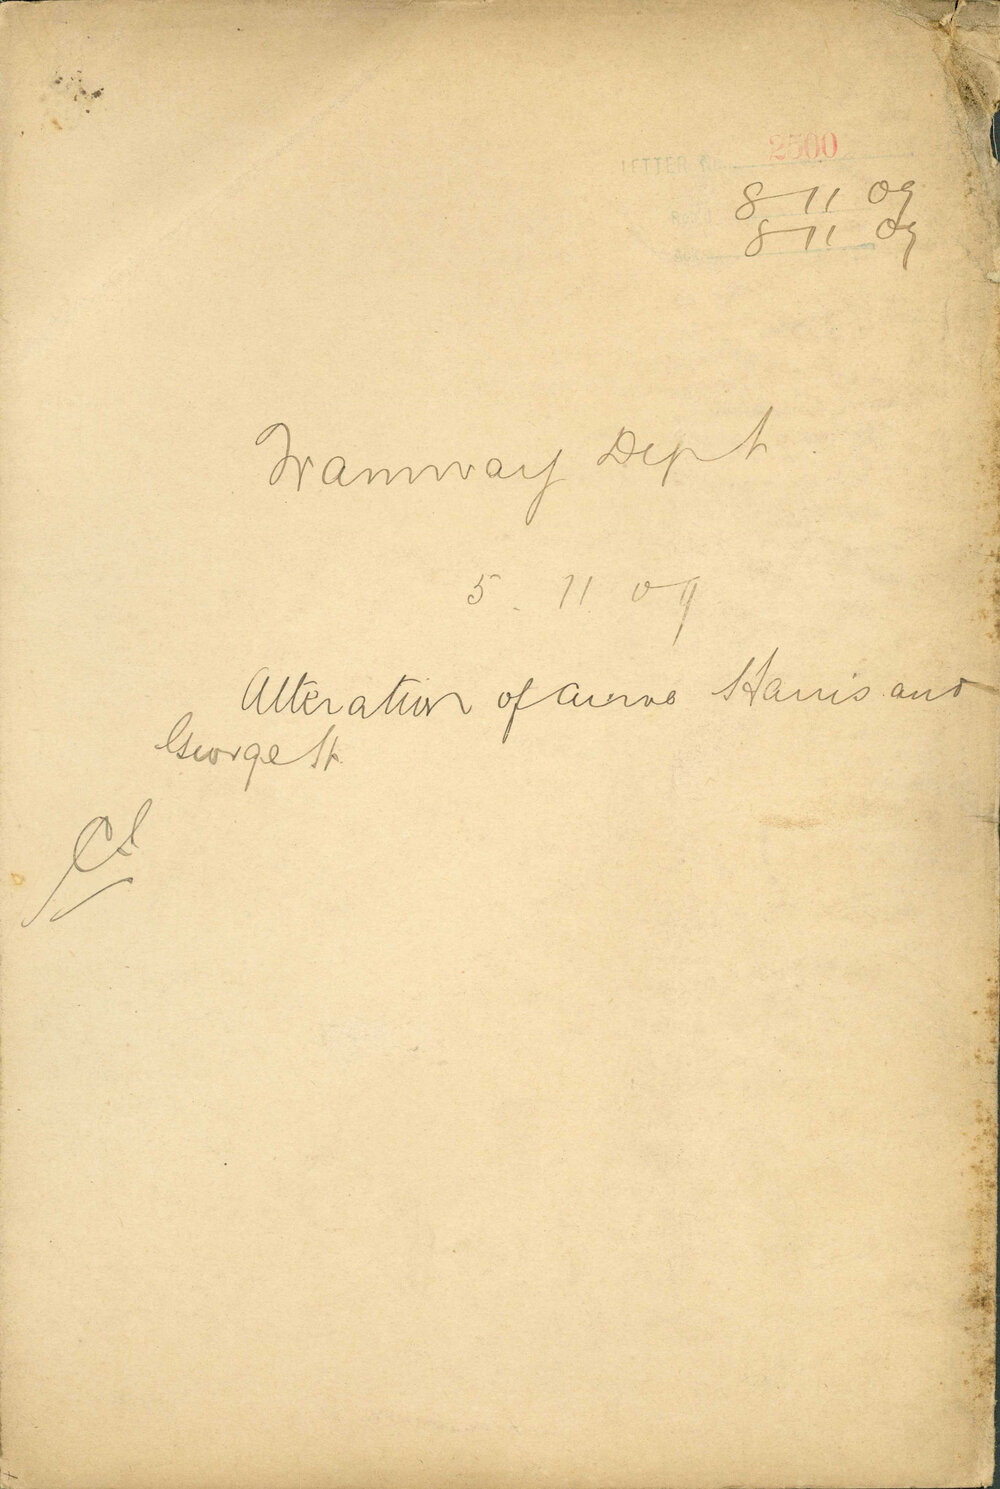 LETTER No. 2500
8 11 09
8 11 09
Tramway Dept
5. 11 09
Alteration of curve Harris and
George St.